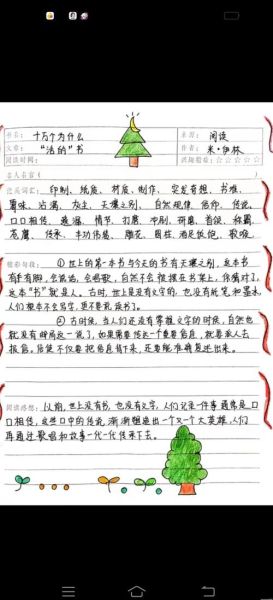 书名： 十万个为什么
来源： 阅读
文章： “活的”书
作者： 米·伊林
阅读时间：
名人名言（
优美词汇： 印刷、纸质、材质、制作、突发奇想、书堆、
沾满、灰尘、天壤之别、自然现象、信仰、传说、
口口相传、情节、打磨、冲刷、研磨、首领、称霸、
传来、丰功伟绩、雕花、圆柱、酒足饭饱、歌颂
精彩句段： ①世上的第一本书与今天的书有天壤之别，这本书
有手有脚，会说话，会唱歌，自然不会摆在书架上，你猜对了，
这本“书”就是人。古时，世上是没有文字的，也没有纸笔和墨水，
人们根本不会写字，更不要说读书了。
②古时候，当人们还没有掌握文字的时候，自然也
就没有邮局这一说了，如果需要传达一个重要信息，就要派人去
报信，信使不仅要把信息背下来，还要能准确复述出来。
阅读感想： 以前，世上没有书，也没有文字，人们记录一件事通常是口
口相传，这些口中的传说，渐渐塑造出一个又一个大英雄，人们
再通过歌唱和故事一代一代传承下去。